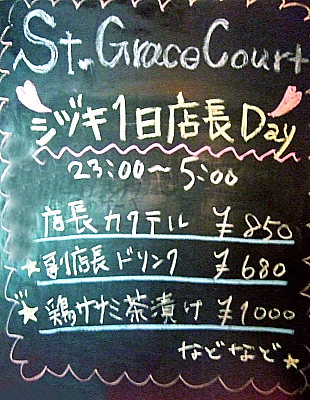 St. Grace Court
シヅキ1日店長Day
23:00～5:00
店長カクテル ¥850
★副店長ドリンク ¥680
★鶏ササミ茶漬け ¥1000
などなど★